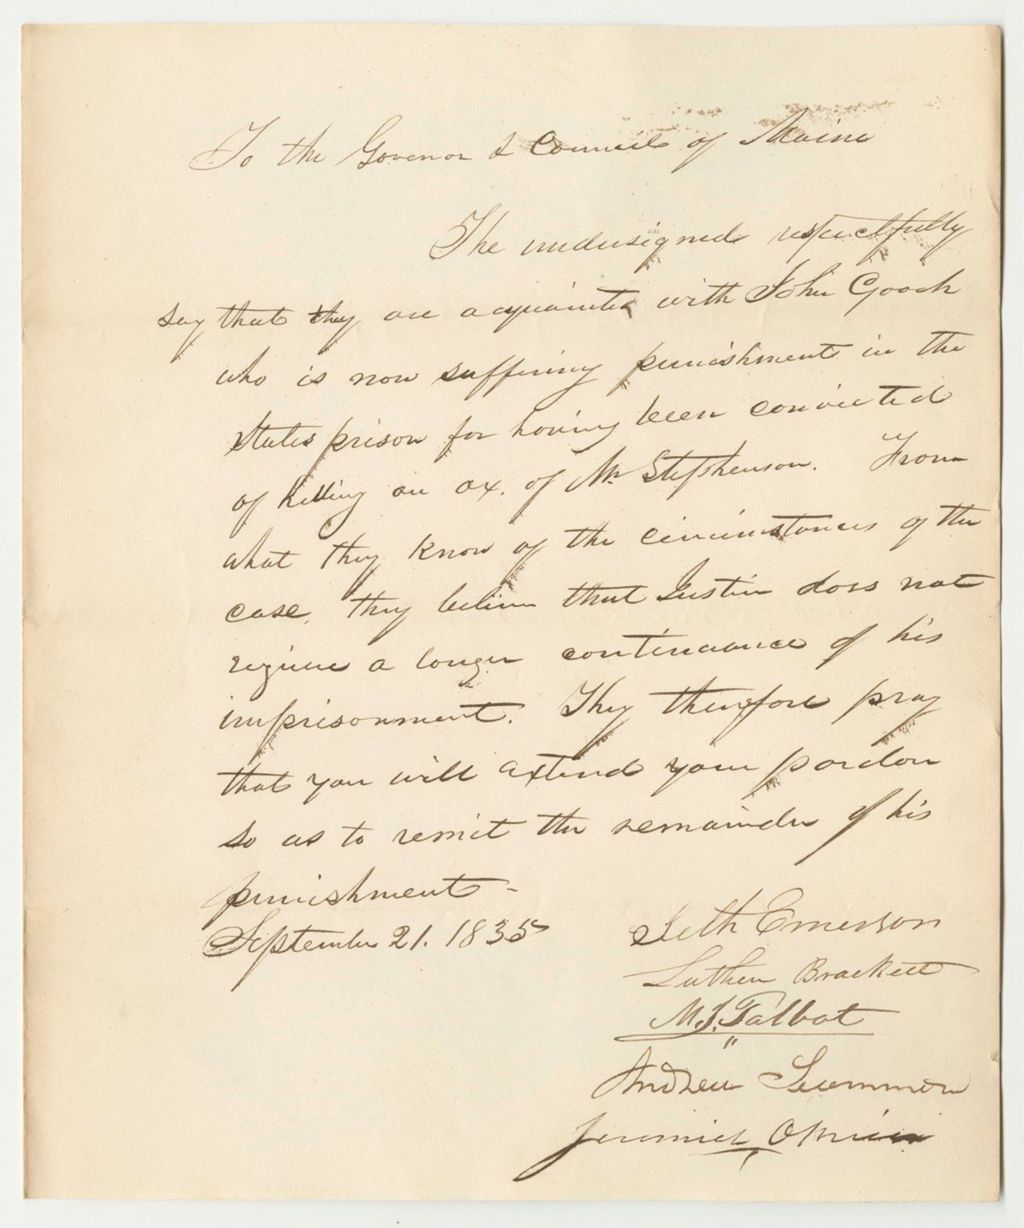 To the Govenor & Council of Maine
The undersigned respectfully
say that they are acquainted with John Gooch
who is now suffering punishment in the
States prison for having been convicted
of killing an ox. of Mr Stephenson. From
what they know of the circumstances of the
case, they believe that Justice does not
require a longer continuance of his
imprisonment. They therefore pray
that you will extend your pardon
so as to remit the remainder of his
punishment -
September 21. 1835
Seth Emerson
Luther Brackett
M. J. Talbot
Andrew
Jeremiah OBrien